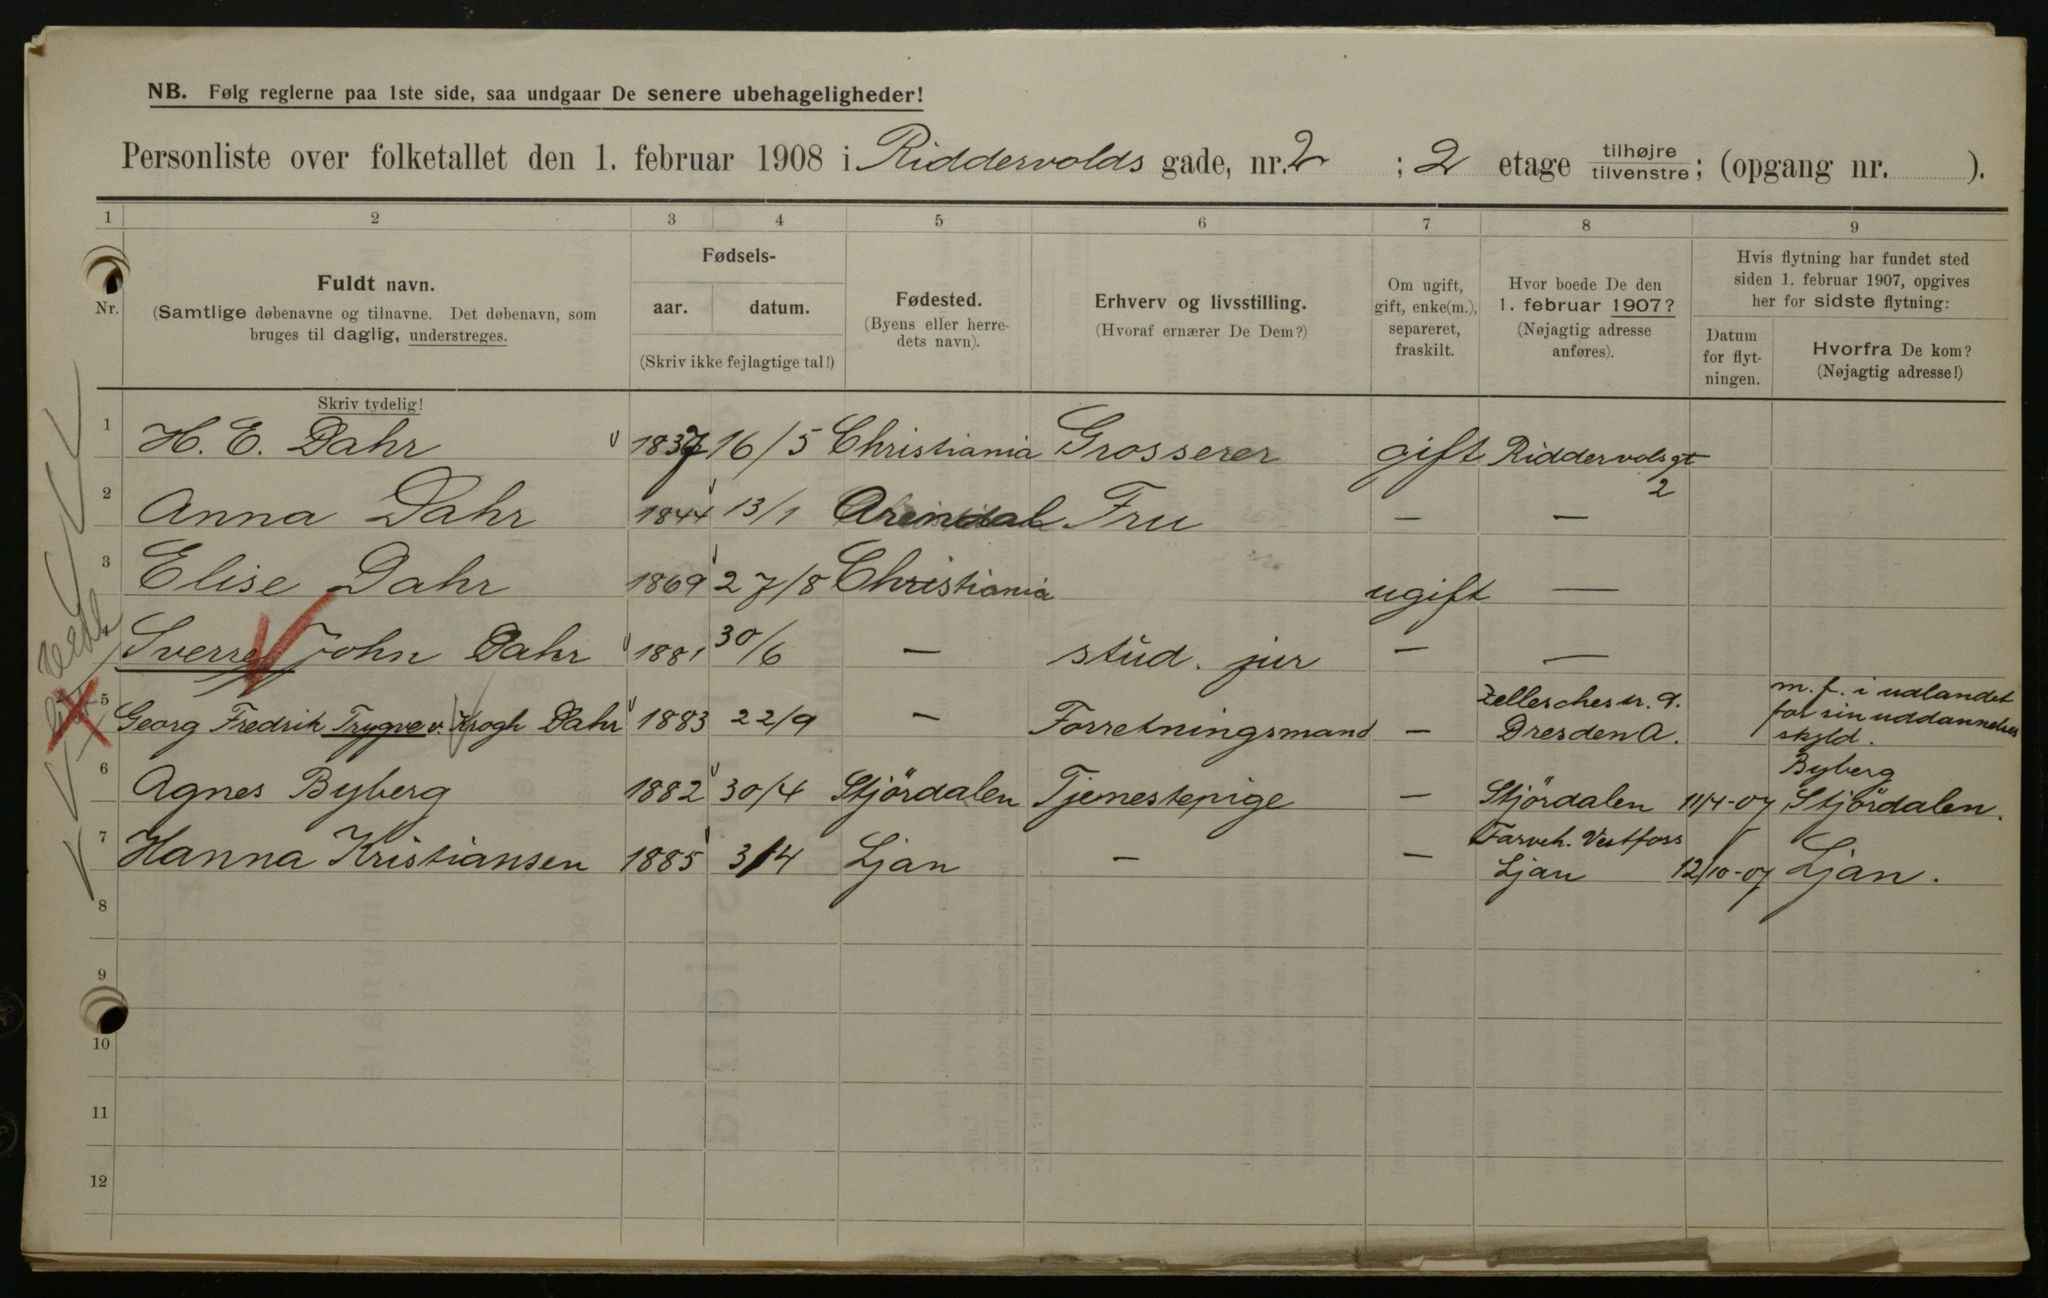 NB. Følg reglerne paa 1ste side, saa undgaar De senere ubehageligheder!
Personliste over folketallet den 1. februar 1908 i Riddervolds gade, nr. 2 ; 2 etage tilhøjre/tilvenstre; (opgang nr. ).
1 2 3 4 5 6 7 8 9
Nr.
Fuldt navn.
(Samtlige døbenavne og tilnavne. Det døbenavn, som
bruges til daglig, understreges.
Fødsels-
aar. datum.
(Skriv ikke fejlagtige tal!)
Fødested.
(Byens eller herre-
dets navn).
Erhverv og livsstilling.
(Hvoraf ernærer De Dem?)
Om ugift,
gift, enke(m.),
separeret,
fraskilt.
Hvor boede De den
1. februar 1907?
(Nøjagtig adresse
anføres).
Hvis flytning har fundet sted
siden 1. februar 1907, opgives
her for sidste flytning:
Datum
for flyt-
ningen.
Hvorfra De kom?
(Nøjagtig adresse!)
Skriv tydelig!
1 H. E. Dahr 1837 16/5 Christiania Grosserer gift Riddervolsgt
2
2 Anna Dahr 1844 13/1 Arendal Fru — —
3 Elise Dahr 1869 27/8 Christiania ugift —
Sverre John Dahr 1881 30/6 — stud. jur — —
5 Georg Fredrik Trygve v. Krogh Dahr 1883 22/9 — Forretningsmand — Zellesches tr. 9.
Dresden A.
m. f. i udlandet
for sin uddannelses
skyld.
6 Agnes Byberg 1882 30/4 Stjördalen Tjenestepige — Stjördalen 11/4-07 Byberg
Stjördalen.
7 Hanna Kristiansen 1885 3/4 Ljan — — Farveh. Vestfoss
Ljan 12/10-07 Ljan.
8
9
10
11
12